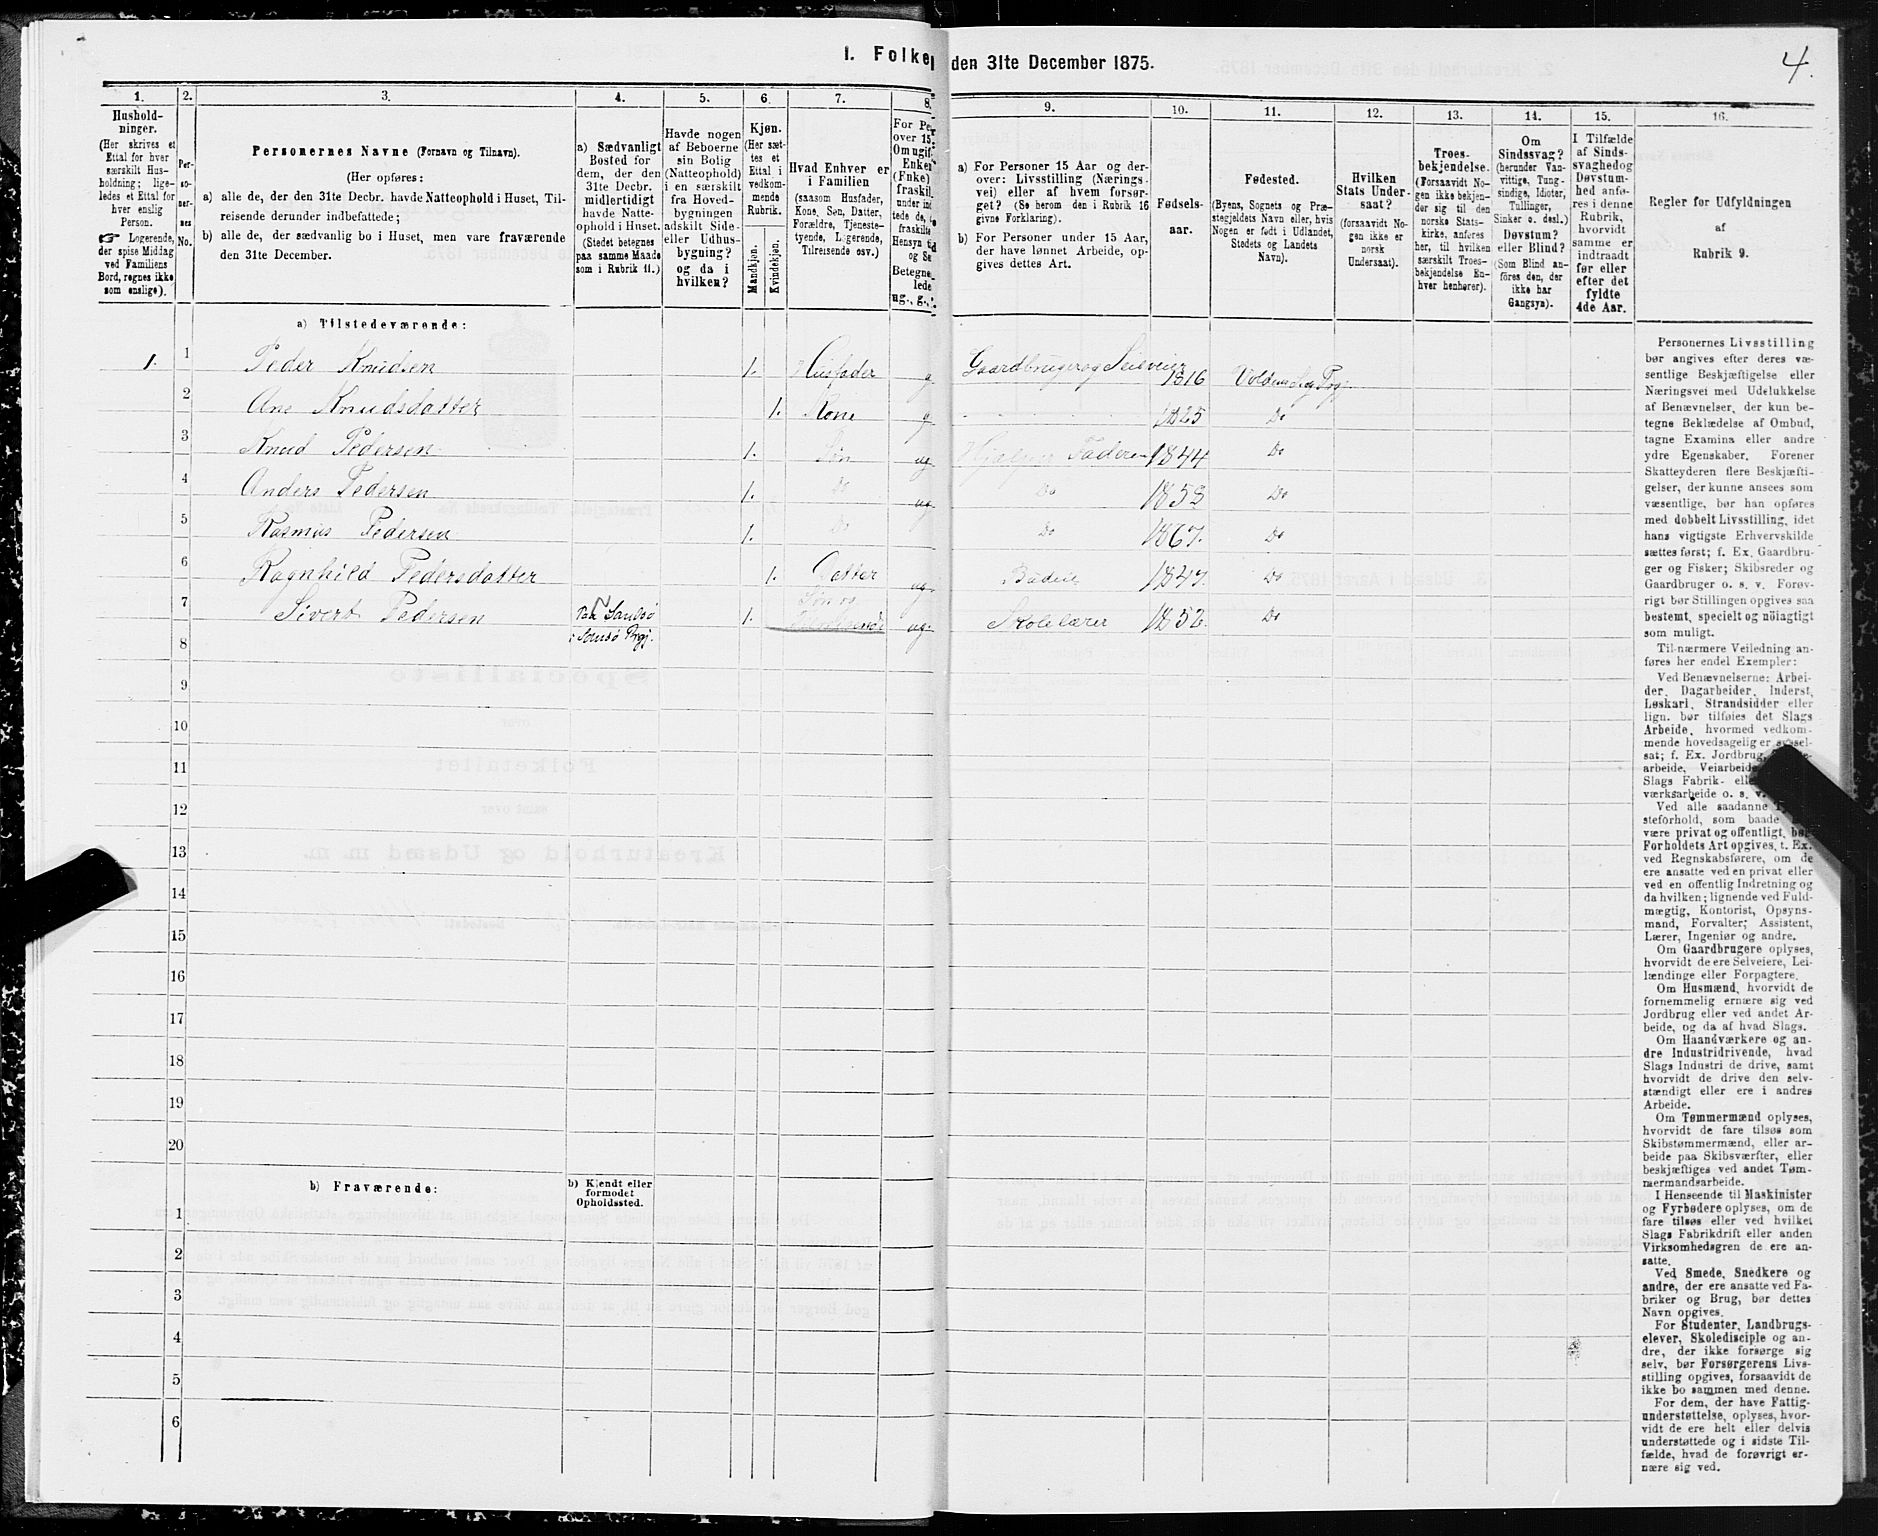 I. Folke den 31te December 1875.
4.
1.
Hushold-
ninger.
(Her skrives et
Ettal for hver
særskilt Hus-
holdning; lige-
ledes et Ettal for
hver enslig
Person.
☞ Logerende,
der spise Middag
ved Familiens
Bord, regnes ikke
som enslige).
2.
Per-
so-
ner-
nes
No.
3.
Personernes Navne (Fornavn og Tilnavn).
(Her opføres:
a) alle de, der den 31te Decbr. havde Natteophold i Huset, Til-
reisende derunder indbefattede;
b) alle de, der sædvanlig bo i Huset, men vare fraværende
den 31te December.
4.
a) Sædvanligt
Bosted for
dem, der den
31te Decbr.
midlertidigt
havde Natte-
ophold i Huset.
(Stedet betegnes
paa samme Maade
som i Rubrik 11.)
5.
Havde nogen
af Beboerne
sin Bolig
(Natteophold)
i en særskilt
fra Hoved-
bygningen
adskilt Side-
eller Udhus-
bygning?
og da i
hvilken?
6.
Kjøn.
(Her sæt-
tes et
Ettal i
vedkom-
mende
Rubrik.
Mandkjøn.
Kvindekjøn.
7.
Hvad Enhver er
i Familien
(saasom Husfader,
Kone, Søn, Datter,
Forældre, Tjeneste-
tyende, Logerende,
Tilreisende osv.)
8.
For Pe
over 15
Om ugif
Enke
(Fnke)
fraskil
under ind
tede de, f
fraskilte
Hensyn t
og Se
Betegne
lede
ug., g.,
9.
a) For Personer 15 Aar og der-
over: Livsstilling (Nærings-
vei) eller af hvem forsør-
get? (Se herom den i Rubrik 16
givne Forklaring).
b) For Personer under 15 Aar,
der have lønnet Arbeide, op-
gives dettes Art.
10.
Fødsels-
aar.
11.
Fødested.
(Byens, Sognets og Præ-
stegjeldets Navn eller, hvis
Nogen er født i Udlandet,
Stedets og Landets
Navn).
12.
Hvilken
Stats Under-
saat?
(forsaavidt No-
gen ikke er
norsk
Undersaat).
13.
Troes-
bekjendelse.
(Forsaavidt No-
gen ikke bekjen-
der sig til den
norske Stats-
kirke, anføres
her, til hvilken
særskilt Troes-
bekjendelse En-
hver henhører).
14.
Om
Sindssvag?
(herunder Van-
vittige, Tung-
sindige, Idioter,
Tullinger,
Sinker o. desl.)
Døvstum?
eller Blind?
(Som Blind an-
föres den, der
ikke har
Gangsyn).
15.
I Tilfælde
af Sinds-
svaghed og
Døvstum-
hed anfø-
res i denne
Rubrik,
hvorvidt
samme er
indtraadt
før eller
efter det
fyldte
4de Aar.
16.
Regler for Udfyldningen
af
Rubrik 9.
a) Tilstedeværende:
1. 1 Peder Knudsen 1. Husfader g Gaardbruger og Selveier 1816
2 Ane Knudsdatter 1. Kone g 1825 Do
3 Knud Pedersen 1. Søn ug. Hjelper Faderen 1844 Do
4 Anders Pedersen 1. Do ug Do 1858 Do
5 Rasmus Pedersen 1. Do Do 1867. Do
6 Ragnhild Pedersdatter 1. Datter ug. Budeie 1847. Do
7 Sivert Pedersen Paa Sandsø 1. ug. Skolelærer 1852. Do
8 i Sandsø Prgj.
9
10
11
12
13
14
15
16
17
18
19
20
b) Fraværende:
b) Kjendt eller
formodet
Opholdssted.
1
2
3
4
5
6
Personernes Livsstilling
bør angives efter deres væ-
sentlige Beskjæftigelse eller
Næringsvei med Udelukkelse
af Benævnelser, der kun be-
tegne Beklædelse af Ombud,
tagne Examina eller andre
ydre Egenskaber. Forener
Skatteyderen flere Beskjæfti-
gelser, der kunne ansees som
væsentlige, bør han opføres
med dobbelt Livsstilling, idet
hans vigtigste Erhvervskilde
sættes først; f. Ex. Gaardbru-
ger og Fisker; Skibsreder og
Gaardbruger o. s. v. Forøv-
rigt bør Stillingen opgives saa
bestemt, specielt og nöiagtigt
som muligt.
Til nærmere Veiledning an-
føres her endel Exempler:
Ved Benævnelserne: Arbei-
der, Dagarbeider, Inderst,
Løskarl, Strandsidder eller
lign. bør tilføies det Slags
Arbeide, hvormed vedkom-
mende hovedsagelig er syssel-
sat; f. Ex. Jordbrug,
arbeide, Veiarbeide
Slags Fabrik- elle
værksarbeide o. s. v.
Ved alle saadanne
steforhold, som baade
være privat og offentligt, bør
Forholdets Art opgives, t. Ex.
ved Regnskabsførere, om de
ere ansatte ved en privat eller
ved en offentlig Indretning og
da hvilken; lignende ved Fuld-
mægtig, Kontorist, Opsyns-
mand, Forvalter, Assistent,
Lærer, Ingeniør og andre.
Om Gaardbrugere oplyses,
hvorvidt de ere Selveiere, Lei-
lændinge eller Forpagtere.
Om Husmænd, hvorvidt de
fornemmelig ernære sig ved
Jordbrug eller ved andet Ar-
beide, og da af hvad Slags.
Om Haandværkere og an-
dre Industridrivende, hvad
Slags Industri de drive, samt
hvorvidt de drive den selv-
stændigt eller ere i andres
Arbeide.
Om Tømmermænd oplyses,
hvorvidt de fare tilsøs som
Skibstømmermænd, eller ar-
beide paa Skibsværfter, eller
beskjæftiges ved andet Tøm-
mermandsarbeide.
I Henseende til Maskinister
og Fyrbødere oplyses, om de
fare tilsøs eller ved hvilket
Slags Fabrikdrift eller anden
Virksomhedsgren de ere an-
satte.
Ved Smede, Snedkere og
andre, der ere ansatte ved Fa-
briker og Brug, bør dettes
Navn opgives.
For Studenter, Landbrugs-
elever, Skoledisciple og an-
dre, der ikke forsørge sig
selv, bør Forsørgerens Livs-
stilling opgives, forsaavidt de
ikke bo sammen med denne.
For dem, der have Fattig-
understøttelse, oplyses, hvor-
vidt de ere helt eller delvis
understøttede og i sidste Til-
fælde, hvad de forøvrigt er-
nære sig ved.